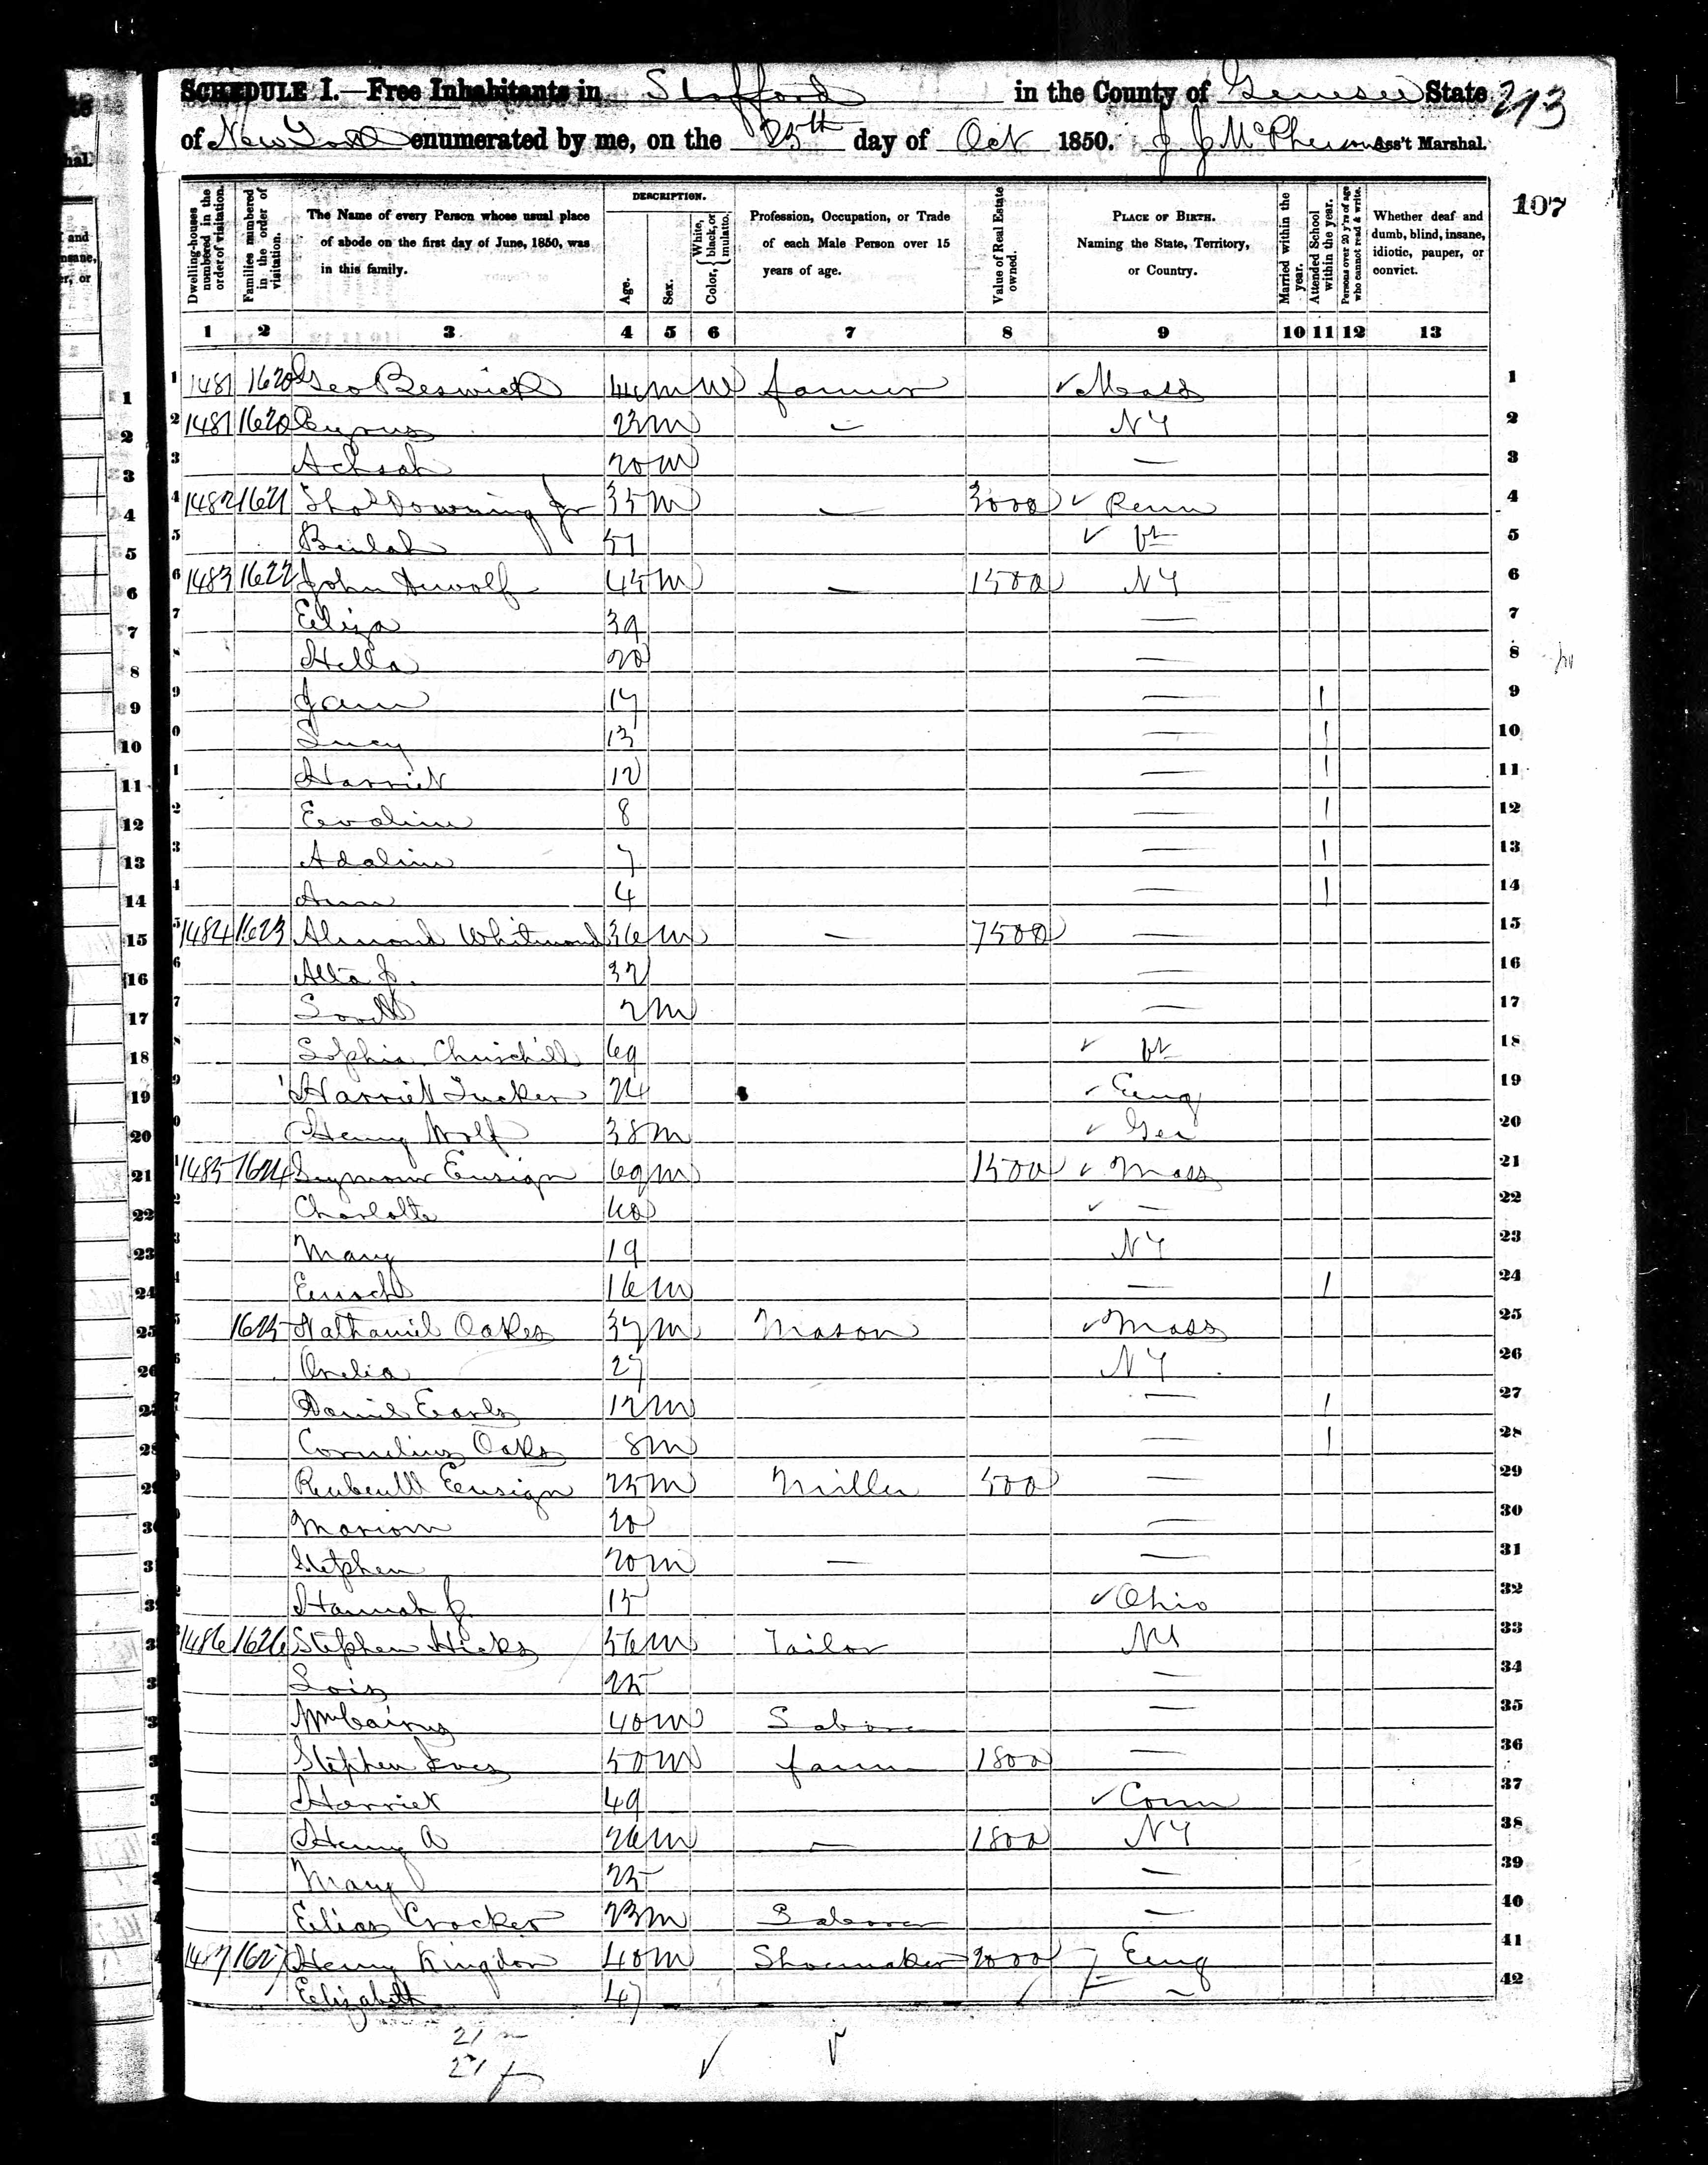 SCHEDULE I.—Free Inhabitants in Stafford in the County of Genesee State 213
of New York enumerated by me, on the 25th day of Oct 1850. J J McPherson Ass't Marshal.
107
Dwelling-houses numbered in the order of visitation.
Families numbered in the order of visitation.
The Name of every Person whose usual place of abode on the first day of June, 1850, was in this family.
DESCRIPTION.
Age.
Sex.
Color, { White, black, or mulatto.
Profession, Occupation, or Trade of each Male Person over 15 years of age.
Value of Real Estate owned.
PLACE OF BIRTH. Naming the State, Territory, or Country.
Married within the year.
Attended School within the year.
Persons over 20 y'rs of age who cannot read & write.
Whether deaf and dumb, blind, insane, idiotic, pauper, or convict.
1 2 3 4 5 6 7 8 9 10 11 12 13
1 1481 1620 Geo Beswick M W farmer ✓ Mass 1
2 1481 1620 Cyrus 23 M — NY 2
3 Achsah 20 M — 3
4 1482 1621 Thos Downing Jr 35 M — 3000 ✓ Penn 4
5 Beulah 51 ✓ Vt 5
6 1483 1622 John Dewolf 45 M — 1500 NY 6
7 Eliza 39 — 7
8 Hella 20 — 8
9 Jane 14 — 1 9
10 Lucy 13 — 1 10
11 Harriet 12 — 1 11
12 Evaline 8 — 1 12
13 Adaline 7 — 1 13
14 Ann 4 — 1 14
15 1484 1623 Almond Whitmond 36 M — 7500 — 15
16 Alta J. 32 — 16
17 2 M — 17
18 Sophia Churchill 69 ✓ Vt 18
19 Harriet Tucker 24 ✓ Eng 19
20 Henry Wolf 38 M ✓ Ger 20
21 1485 1624 Seymour Ensign 69 M 1500 ✓ Mass 21
22 Charlotte 60 ✓ — 22
23 Mary 19 NY 23
24 Enoch 16 M — 1 24
25 1625 Nathaniel Oakes 37 M Mason ✓ Mass 25
26 Orelia 27 NY 26
27 Daniel Earls 12 M — 1 27
28 Cornelius Oaks 8 M — 1 28
29 Reuben W Ensign 25 M Miller 500 — 29
30 Mariom 20 — 30
31 Stephen 20 M — — 31
32 Hannah J. 15 ✓ Ohio 32
33 1486 1626 Stephen Hicks 56 M Tailor NY 33
34 Lois 25 — 34
35 Wm Cairns 40 M Labore — 35
36 Stephen Ives 50 M farm 1800 — 36
37 Harriet 49 ✓ Conn 37
38 Henry A 26 M — 1800 NY 38
39 Mary 25 — 39
40 Elias Crocker 23 M Laborer — 40
41 1487 1627 Henry Kingdon 40 M Shoemaker 2000 Eng 41
42 Elizabeth 47 — 42
21 m
21 f